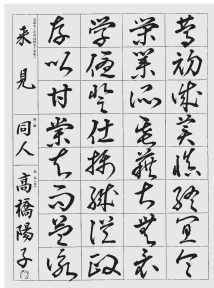 篤初誠美慎終宜令
栄業所基藉甚無竟
学優登仕摂職従政
存以甘棠去而益詠
来見 同人 高橋陽子